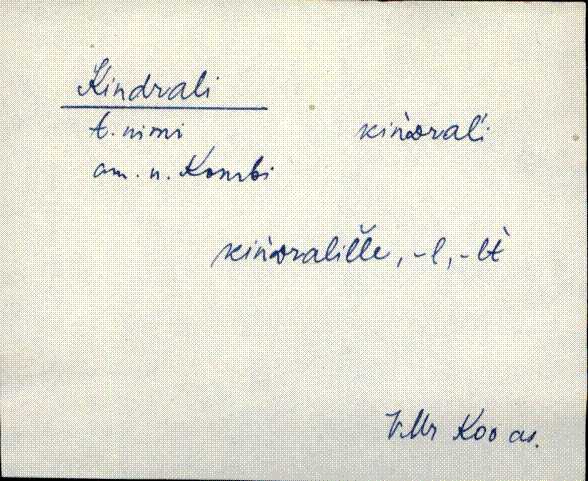 Kindrali
t. nimi kiǹdrali
am. n. Kombi
-l, -lt
V.Mr Koo as.